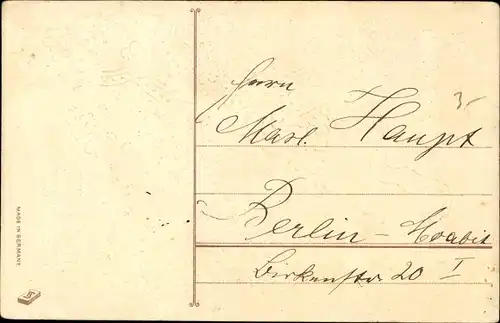 Herrn
Maxl. Haupt
Berlin – Moabit
Birkenstr. 20 I
3-
MADE IN GERMANY